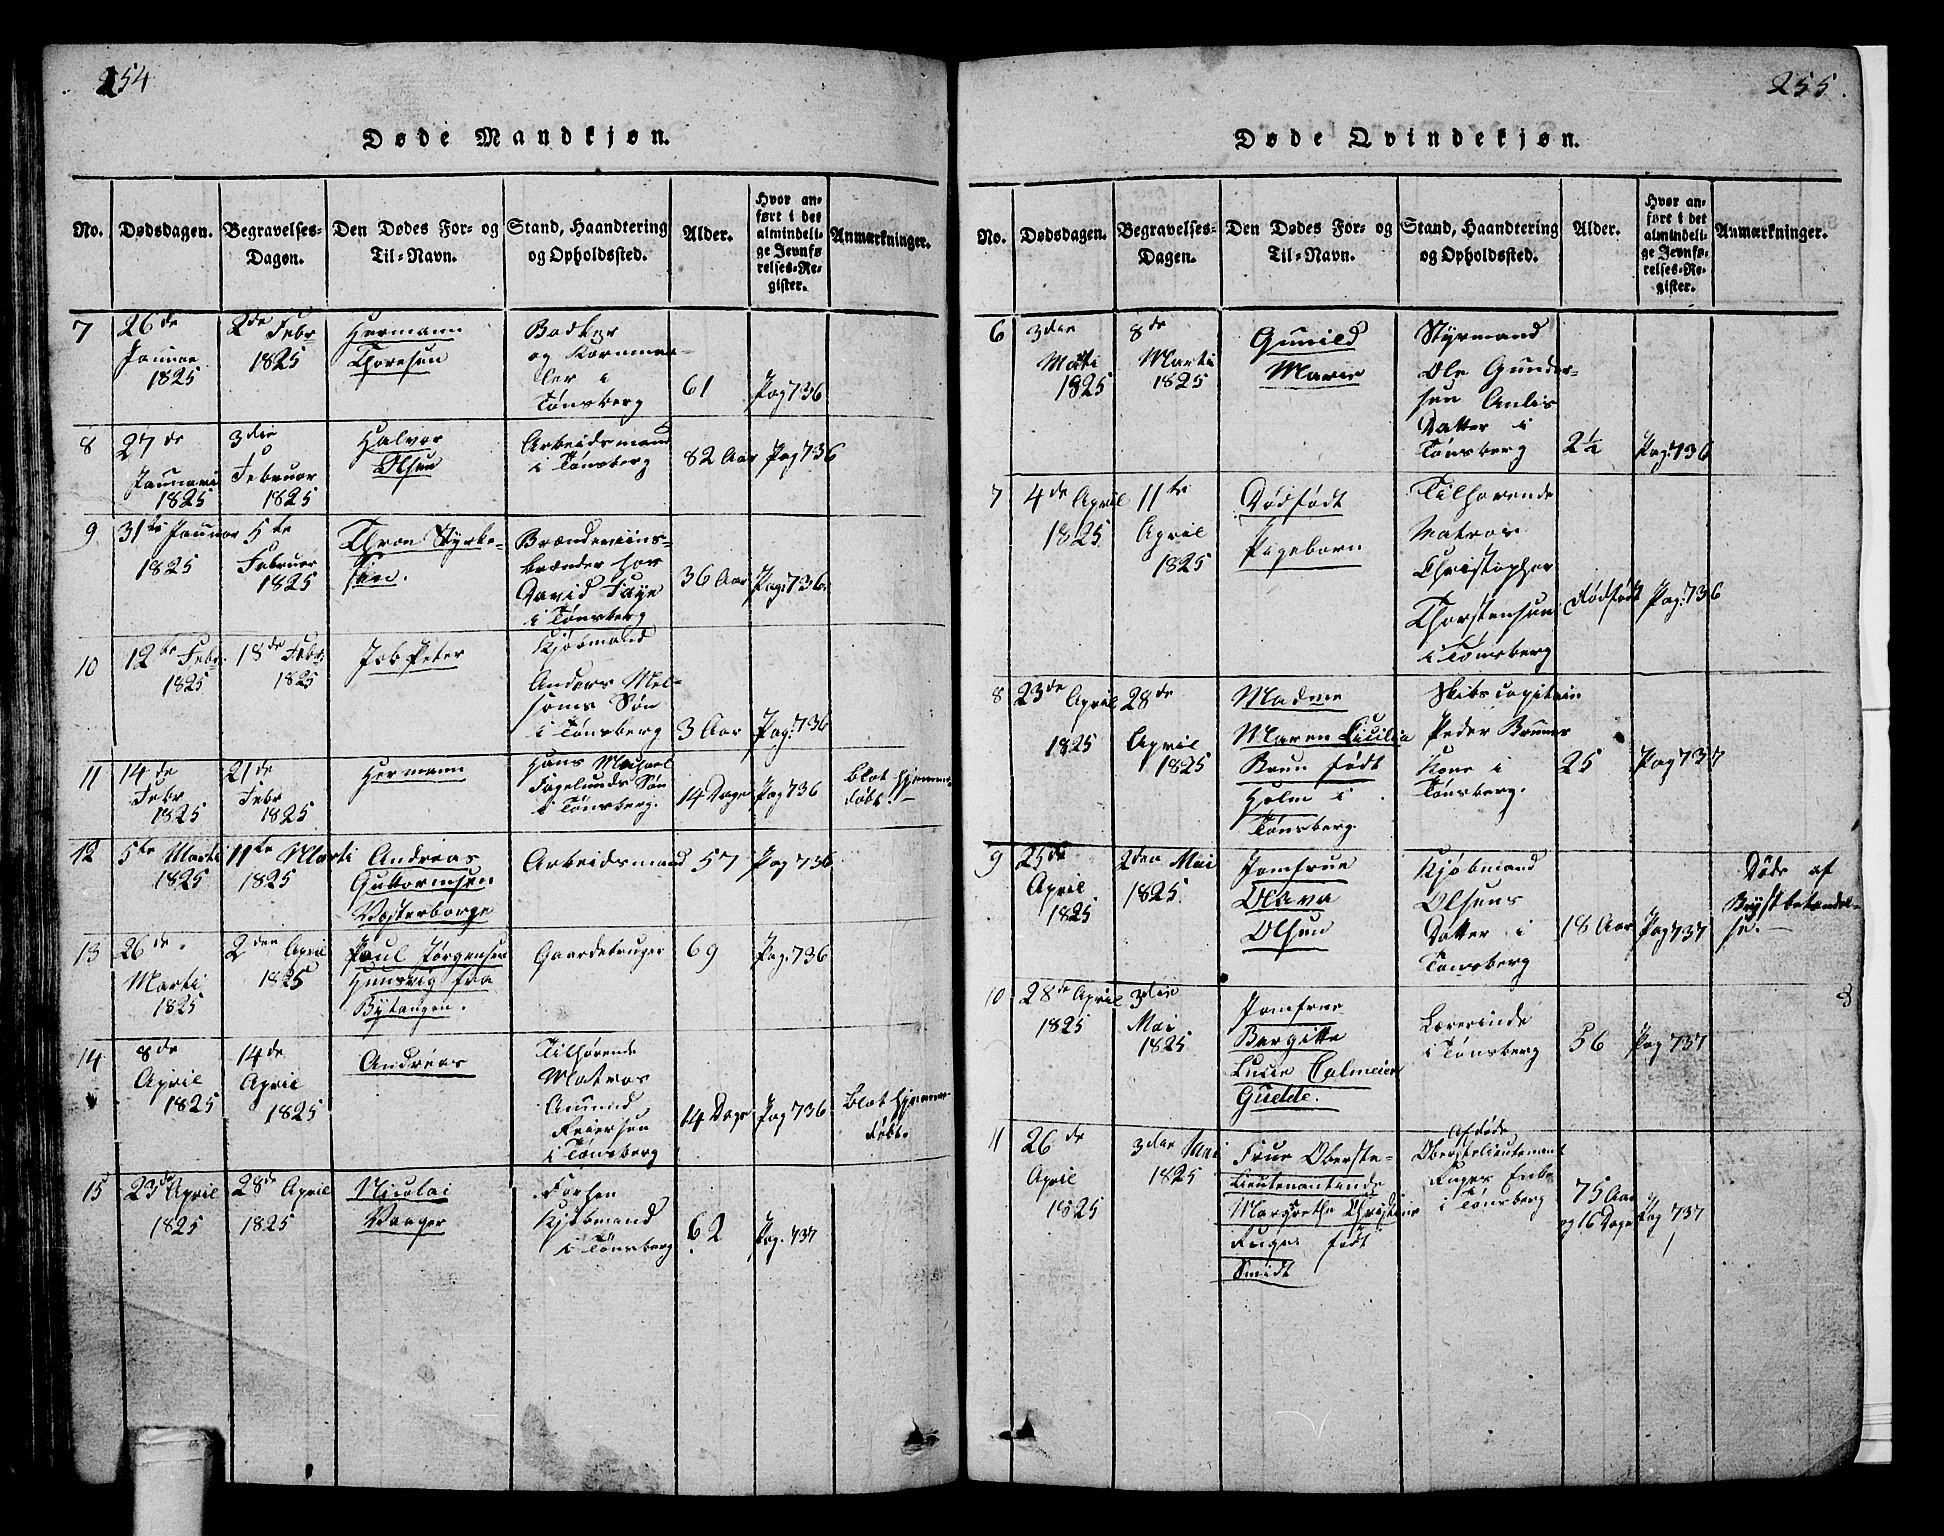 254
Døde Mandkjøn.
No. Dødsdagen. Begravelses-Dagen. Den Dødes For- og Til-Navn. Stand, Haandtering og Opholdssted. Alder. Hvor anført i det almindelige Jevnførelses-Register. Anmærkninger.
7 26de 2de Febr Hermann Bødker
Januar 1825 Thoresen og Kornmaa-
1825 ler i
Tønsberg 61 Pag 736
8 27de 3die Halvor Arbeidsmand
Januari Februar Olsen i Tønsberg 82 Aar Pag 736
1825 1825
9 31te Januar 5te Thron Styrke- Brændeviins-
1825 Februar sen. brænder hos
1825 David Faye 36 Aar Pag: 736
i Tønsberg
10 12te Febr: 18de Febr: Job Peter Kjøbmand
1825 1825 Anders Mel-
soms Søn
i Tønsberg 3 Aar Pag: 736
11 14de 21de Hermann Hans Michael
Febr Febr Fogelunds Søn
1825 1825 i Tønsberg. 14 Dage Pag 736 blot hjemme-
døbt.
12 5te Marti 11te Marti Andreas Arbeidsmand 57 Pag 736
1825 1825 Guttormsen
Vesterborge
13 26de 2den April Poul Jørgensen Gaardebruger 69 Pag. 736
Marti 1825 Hunsvig fra
1825 Bytangen.
14 8de 14de Andréas Tilhørende
April April Matros
1825 1825 Amund
Reiersen 14 Dage Pag 736 blot hjemme-
i Tønsberg døbt.
15 23de April 28de April Nicolai Forhen
1825 1825 Vaager Kjøbmand
i Tønsberg 62 Pag. 737
255.
Døde Qvindekjøn.
No. Dødsdagen. Begravelses-Dagen. Den Dødes For- og Til-Navn. Stand, Haandtering og Opholdssted. Alder. Hvor anført i det almindelige Jevnførelses-Register. Anmærkninger.
6 3die 8de Gunild Styrmand
Marti Marti Marie Ole Gunder-
1825 1825 sen
Datter i
Tønsberg 2½ Pag: 736
7 4de April 11te Dødfødt Tilhørende
1825 April Pigebarn Matros
1825 Christopher
Thorstensen dødfødt Pag: 736
i Tønsberg
8 23de April 28de Madme Skibscapitain
1825 April Maren Cicilia Peder Bruns
1825 Brun født Kone i 25 Pag 737
Holm i Tønsberg.
Tønsberg.
9 25de 2den Mai Jomfrue Kjøbmand Døde af
April 1825 Olava Olsens Brystbetændel-
1825 Olsen Datter i 18 Aar Pag 737 se.
Tønsberg
10 28de April 3die Jomfrue Lærerinde
1825 Mai Bergitte i Tønsberg 56 Pag 737
1825 Lucie Colmeier
Guelde.
11 26de 3die Mai Frue Oberste- Afdøde
April 1825 Lieutenantinde Oberstelieutenant
1825 Margrethe Christine Ruges Enke
Ruges født i Tønsberg 75 Aar
Smidt og 16 Dage Pag 737